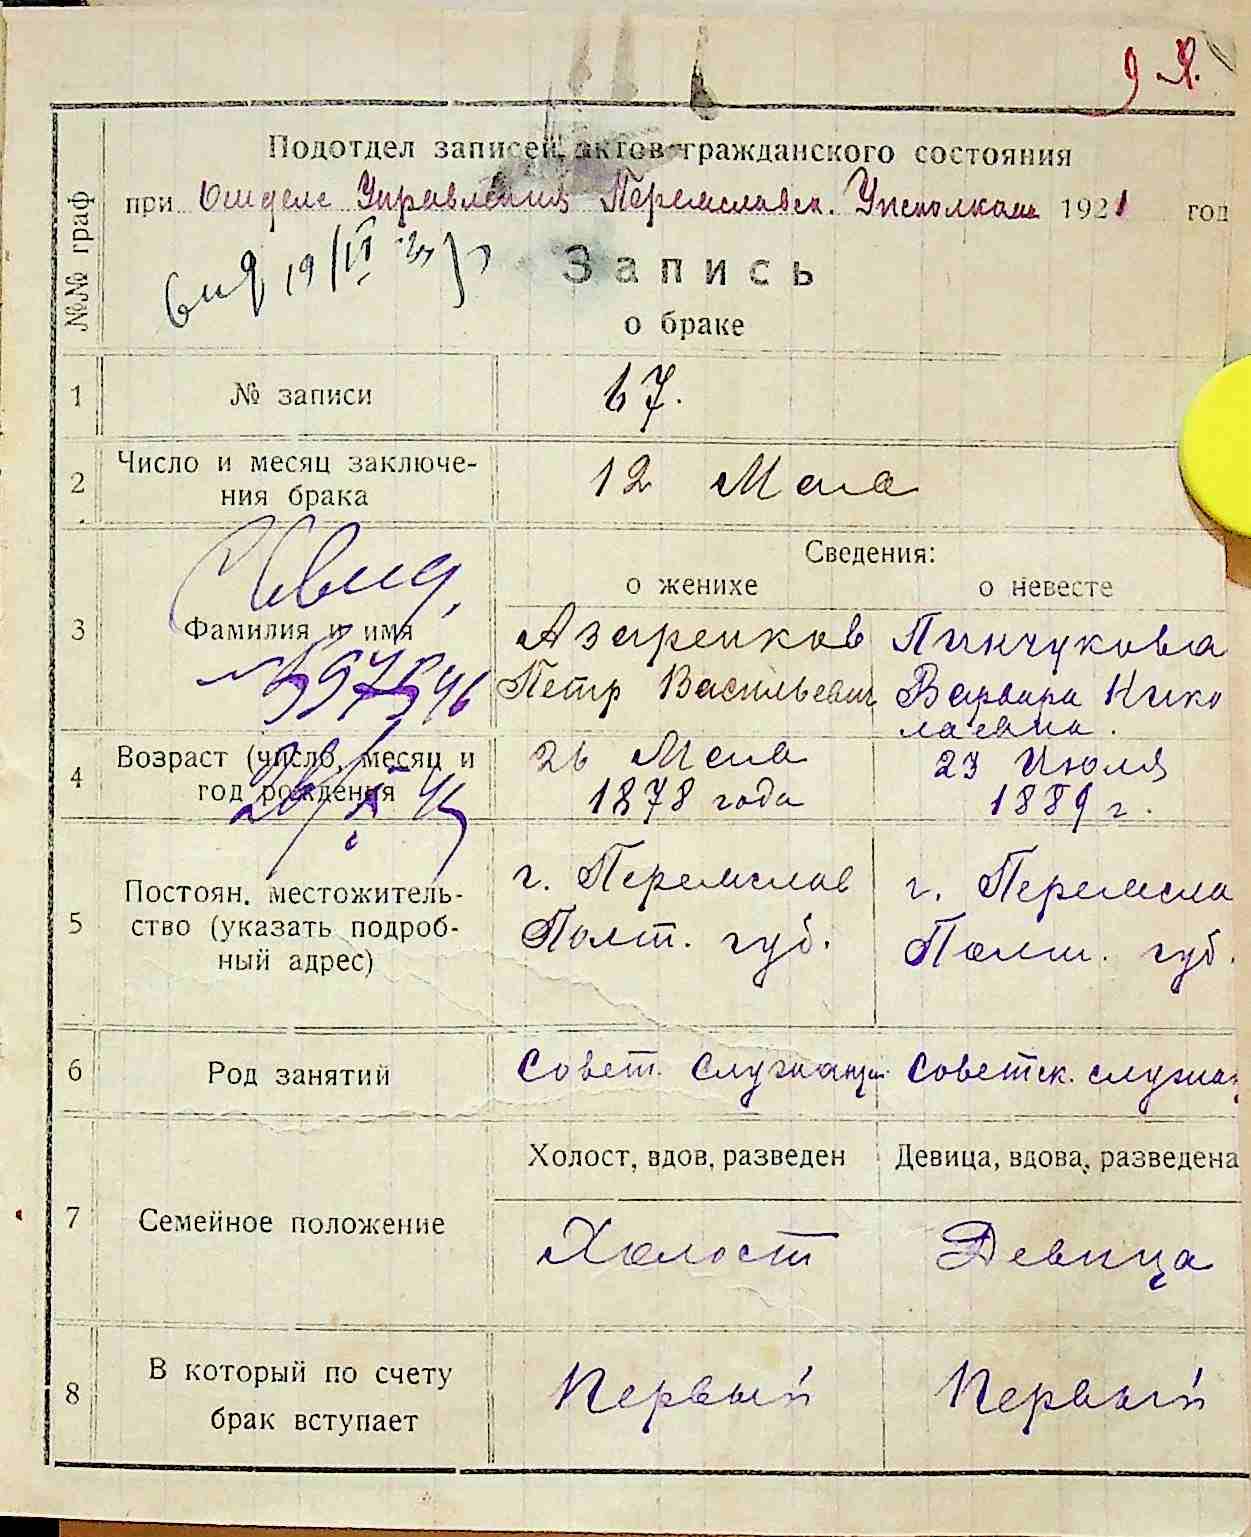 9
Подотдел записей актов гражданского состояния
при Отделе Управления Переяславск. Исполкома 1921 год
Запись
о браке
№№ граф
1 № записи 67.
2 Число и месяц заключе-
ния брака 12 Мая
Сведения:
о женихе о невесте
3 Фамилия и имя Азаренков Пинчукова
№ 597546 Петр Васильевич Варвара Нико
лаевна.
4 Возраст (число, месяц и 26 Мая 23 Июля
год рождения 1878 года 1889 г.
г. Переяслав г. Переясла
5 Постоян. местожитель-
ство (указать подроб- Полт. губ. Полт. губ.
ный адрес)
6 Род занятий Совет. служащ. Советск. служа
Холост, вдов, разведен Девица, вдова, разведена
7 Семейное положение Холост Девица
8 В который по счету Первый Первый
брак вступает